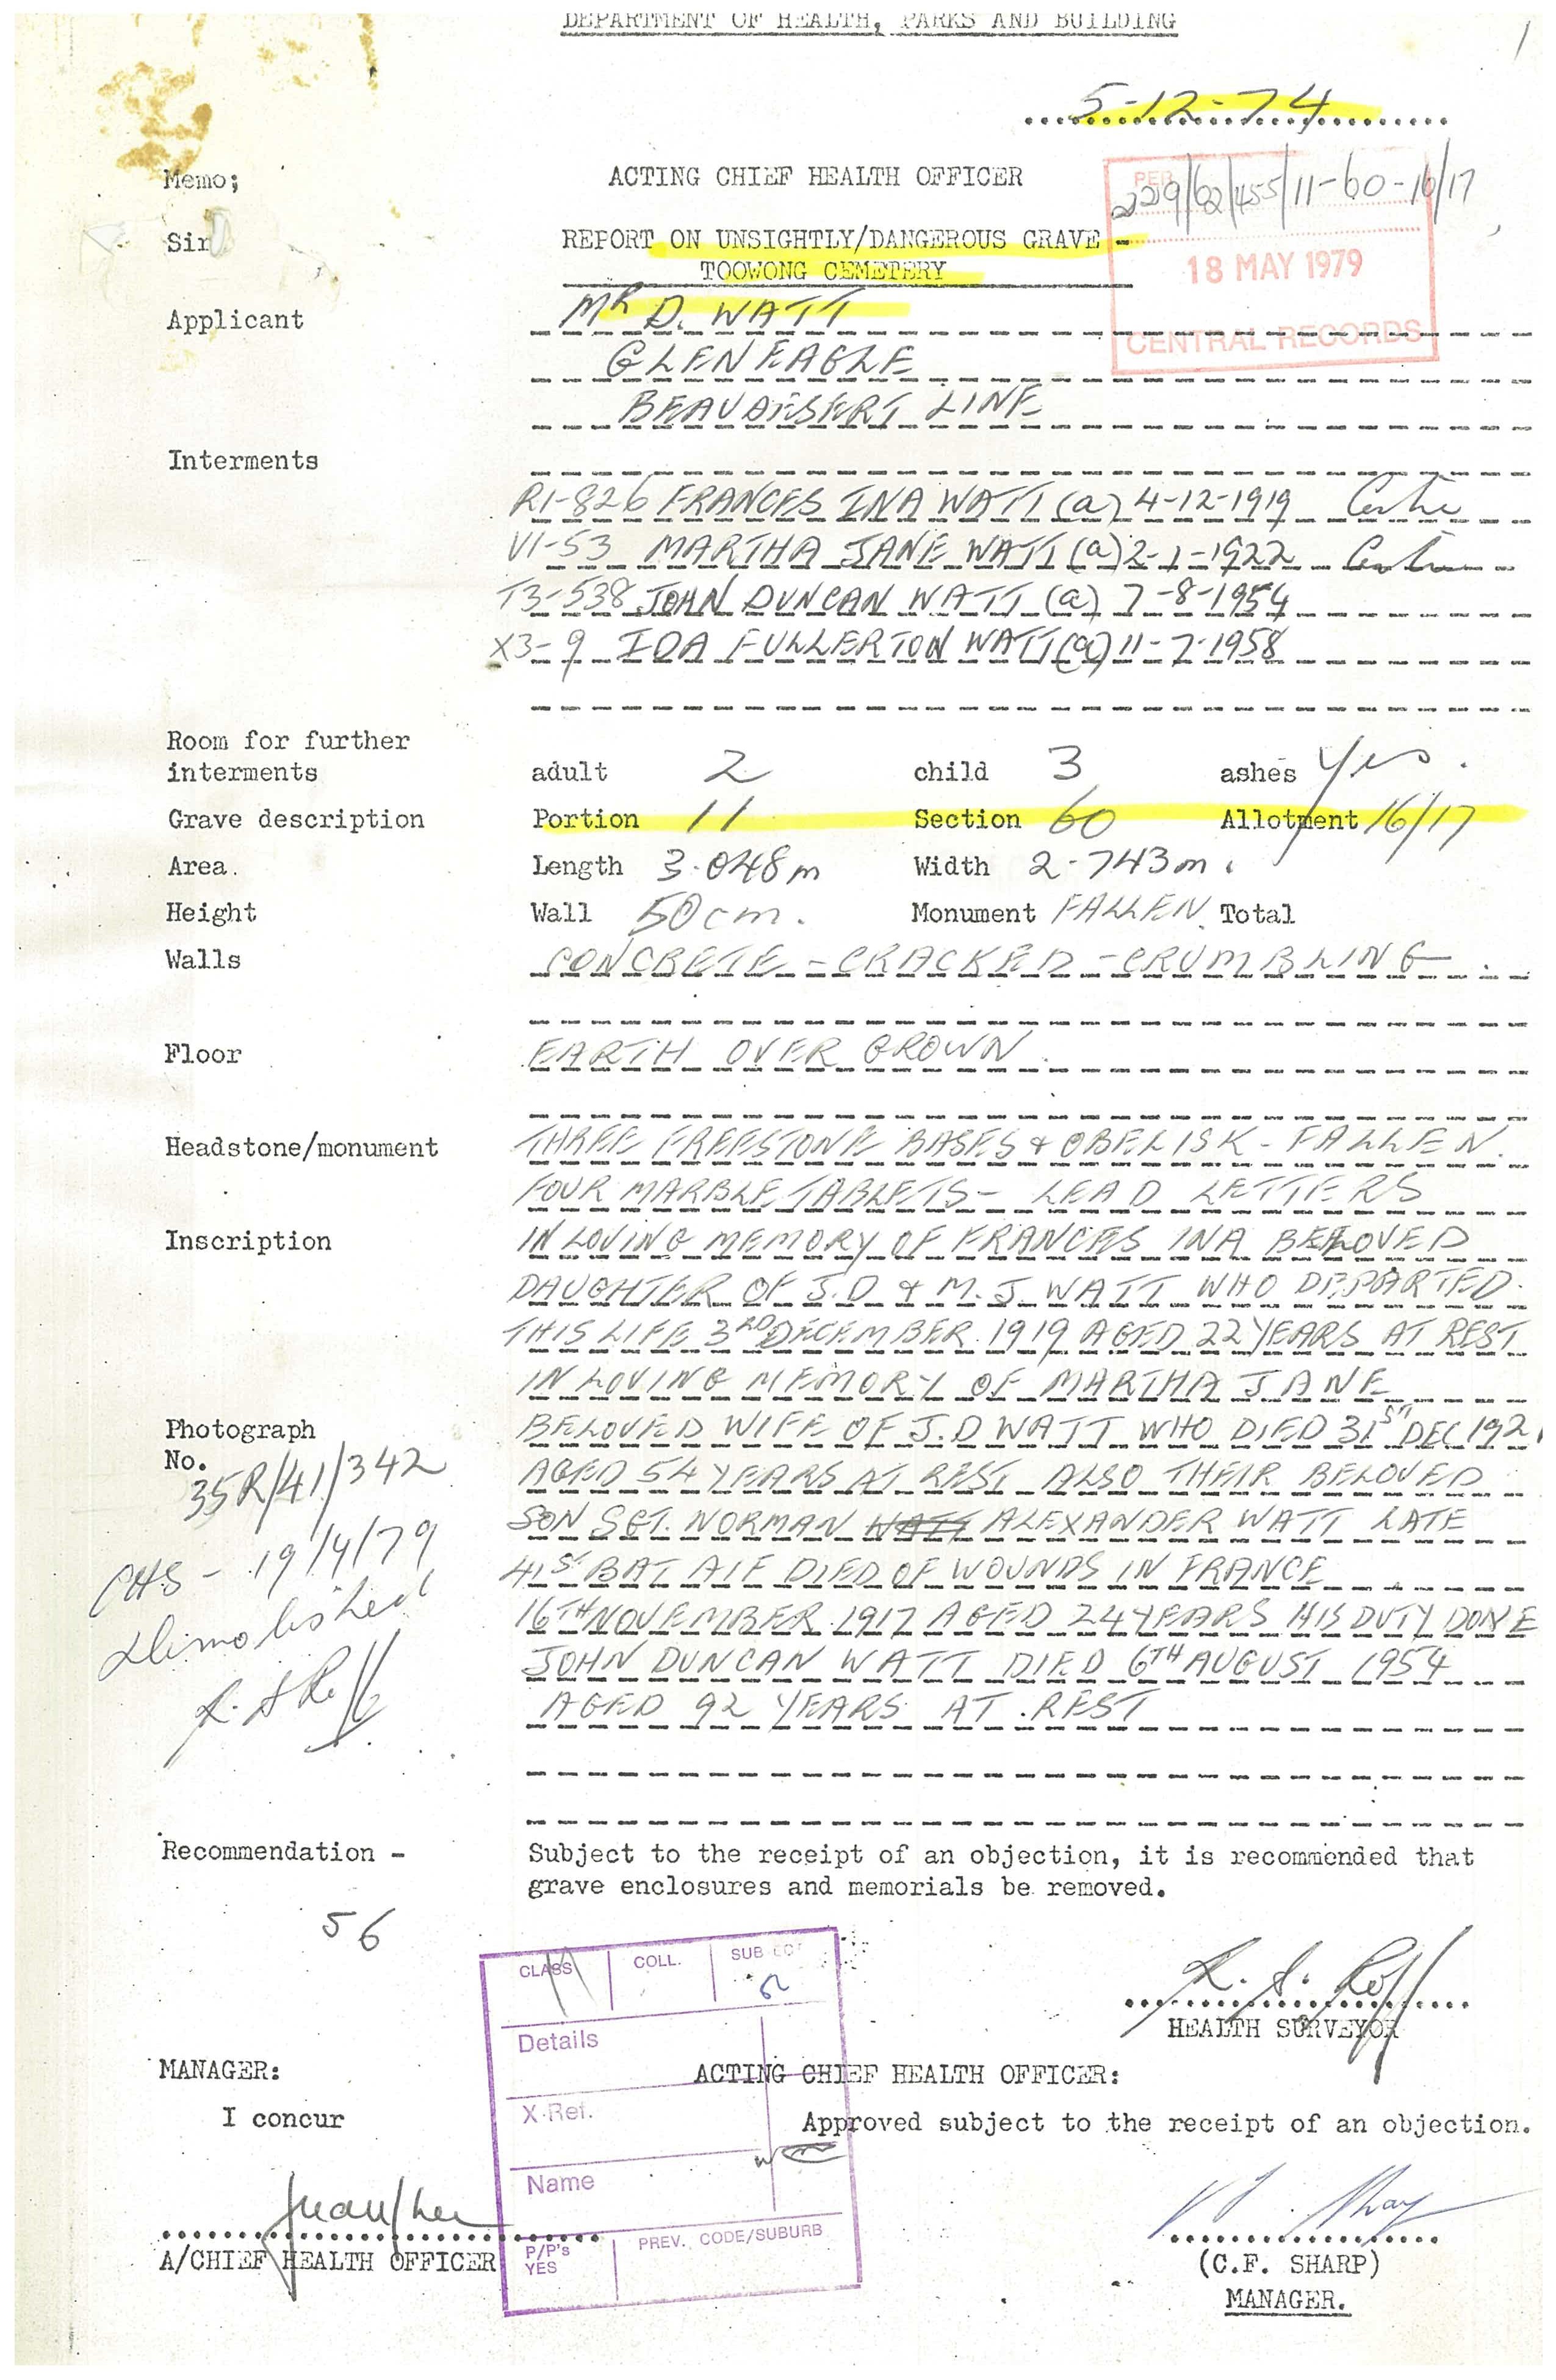 DEPARTMENT OF HEALTH, PARKS AND BUILDING
1
5-12-74
Memo; ACTING CHIEF HEALTH OFFICER
229/62/455/11-60-16/17
Sir REPORT ON UNSIGHTLY/DANGEROUS GRAVE -
TOOWONG CEMETERY
18 MAY 1979
CENTRAL RECORDS
Applicant MR D. WATT
GLENEAGLE
BEAUDESERT LINE
Interments
R1-826 FRANCES INA WATT (a) 4-12-1919 Centre
V1-53 MARTHA JANE WATT (a) 2-1-1922 Centre
T3-538 JOHN DUNCAN WATT (a) 7-8-1954
X3-9 IDA FULLERTON WATT (a) 11-7-1958
Room for further
interments adult 2 child 3 ashes Yes.
Grave description Portion 11 Section 60 Allotment 16/17
Area. Length 3.048m Width 2.743m.
Height Wall 50cm. Monument FALLEN. Total
Walls CONCRETE - CRACKED - CRUMBLING.
Floor EARTH OVER GROWN.
Headstone/monument THREE FREESTONE BASES & OBELISK - FALLEN.
FOUR MARBLE TABLETS - LEAD LETTERS
Inscription IN LOVING MEMORY OF FRANCES INA BELOVED
DAUGHTER OF J.D & M.J. WATT WHO DEPARTED
THIS LIFE 3RD DECEMBER 1919 AGED 22 YEARS AT REST
IN LOVING MEMORY OF MARTHA JANE
Photograph BELOVED WIFE OF J.D WATT WHO DIED 31ST DEC 1921
No. AGED 54 YEARS AT REST ALSO THEIR BELOVED
35R/41/342
SON SGT. NORMAN WATT ALEXANDER WATT LATE
41ST BAT AIF DIED OF WOUNDS IN FRANCE
CHS - 19/4/79
16TH NOVEMBER 1917 AGED 24 YEARS HIS DUTY DONE
Dimolished
JOHN DUNCAN WATT DIED 6TH AUGUST 1954
R. S Roff
AGED 92 YEARS AT REST
Recommendation - Subject to the receipt of an objection, it is recommended that
grave enclosures and memorials be removed.
56
CLASS COLL. SUBJECT
R. S. Roff
HEALTH SURVEYOR
Details
MANAGER: ACTING CHIEF HEALTH OFFICER:
X-Ref.
I concur Approved subject to the receipt of an objection.
Name
P/P's
YES PREV. CODE/SUBURB
A/CHIEF HEALTH OFFICER (C.F. SHARP)
MANAGER.